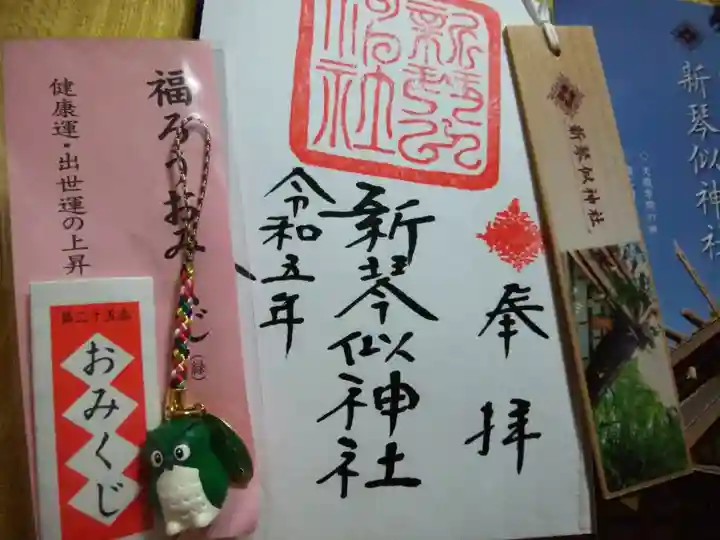 福みくじ
健康運・出世運の上昇
(緑)
第二十五番
おみくじ
新琴似神社
令和五年
新琴似神社
奉拝
新琴似神社
新琴似神社